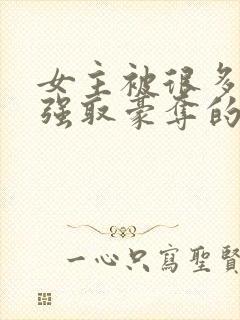 女主被很多
强取豪夺的
一心只寫聖賢